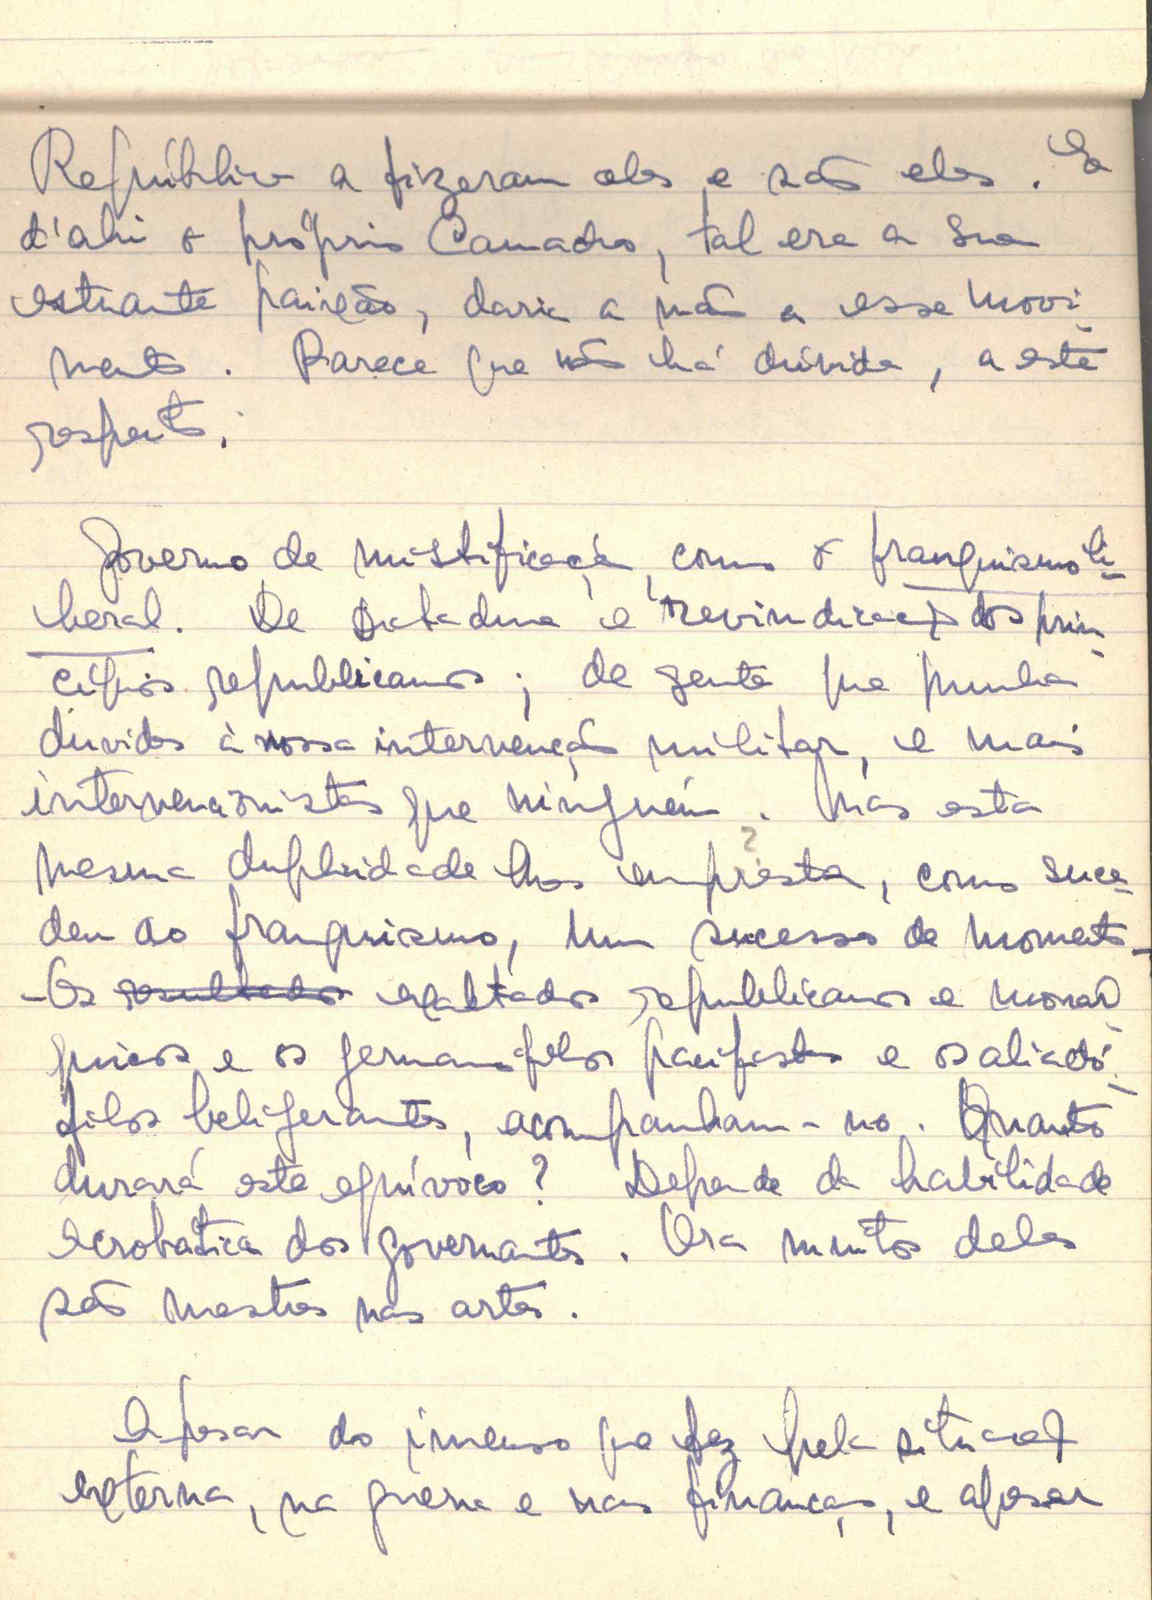 República a fizeram eles e são eles. Eo
d'ahi o próprio Camacho, tal era a sua
estuante paixão, daria a mão a esse movi-
mento. Parece que não há dúvida, a este
respeito.
Governo de mistificação, como o franquismo li-
beral. De ditadura e reivindicação dos prin-
cípios republicanos; de gente que punha
duvidas à nossa intervenção militar, e mais
intervencionistas que ninguém. Mas esta
mesma duplicidade lhes empresta, como suce-
?
deu ao franquismo, um sucesso de momento.
- Os resultados exaltados republicanos e monar-
quicos e os germanófilos pacifistas e os aliadó-
filos beligerantes, acompanham-no. Quanto
durará este equívoco? Depende da habilidade
acrobática dos governantes. Ora muitos deles
são mestres nas artes.
Apesar do imenso que fez pela situação
externa, na guerra e nas finanças, e apesar